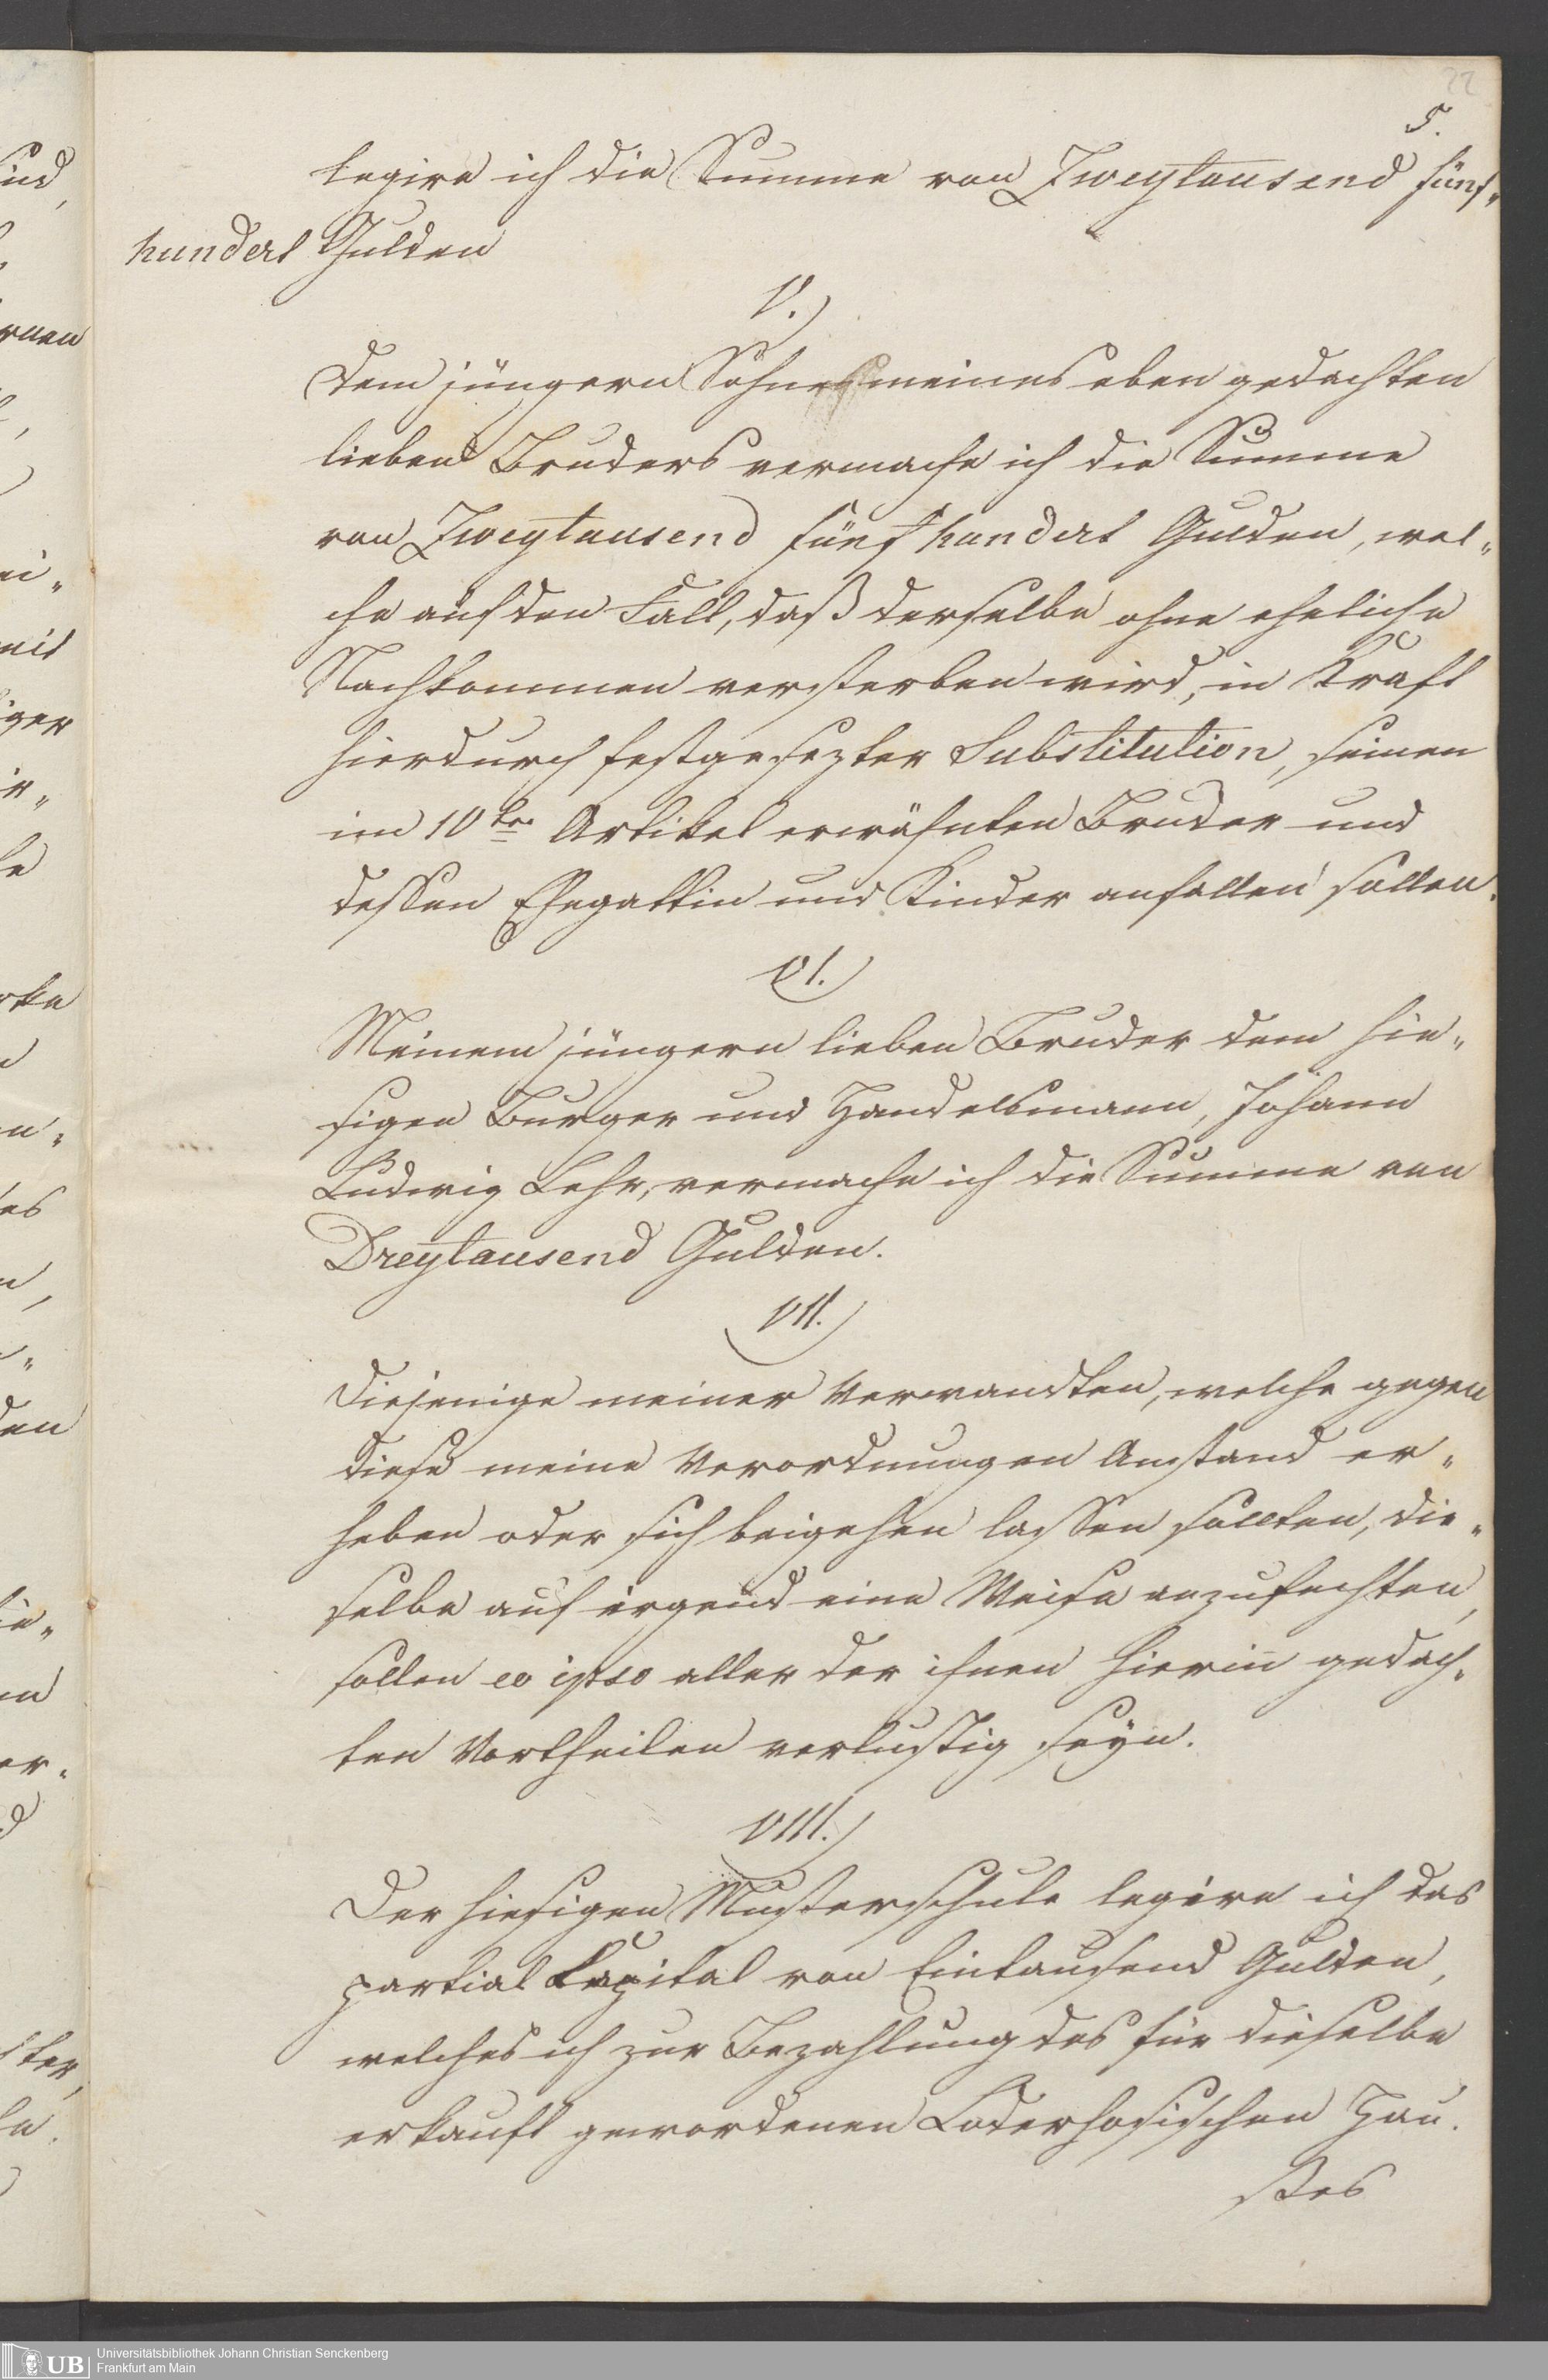 22
5.
legire ich die Summe von Zweytausend fünf„
hundert Gulden
V.)
Dem jüngern Sohne meines eben gedachten
lieben Bruders vermache ich die Summe
von Zweytausend fünfhundert Gulden, wel„
che auf den Fall, daß derselbe ohne eheliche
Nachkommen versterben wird, in Kraft
hierdurch festgesezter Substitution, seinen
im 10ten Artikel erwähnten Bruder und
dessen Ehegattin und Kinder anfallen sollen.
VI.)
Meinem jüngern lieben Bruder dem hie„
sigen Burger und Handelsmann, Johann
Ludwig Lehr, vermache ich die Summe von
Dreytausend Gulden.
VII.)
Diejenige meiner Verwandten, welche gegen
diese meine Verordnungen Anstand er„
heben oder sich beigehen lassen sollten, die„
selbe auf irgend eine Weise anzufechten,
sollen eo ipso aller der ihnen hierin gedach„
ten Vortheilen verlustig seyn.
VIII.)
Der hiesigen Musterschule legire ich das
partial Kapital von Eintausend Gulden,
welches ich zur Bezahlung des für dieselbe
erkauft gewordenen Loderhosischen Hau„
ses
Universitätsbibliothek Johann Christian Senckenberg
UB Frankfurt am Main